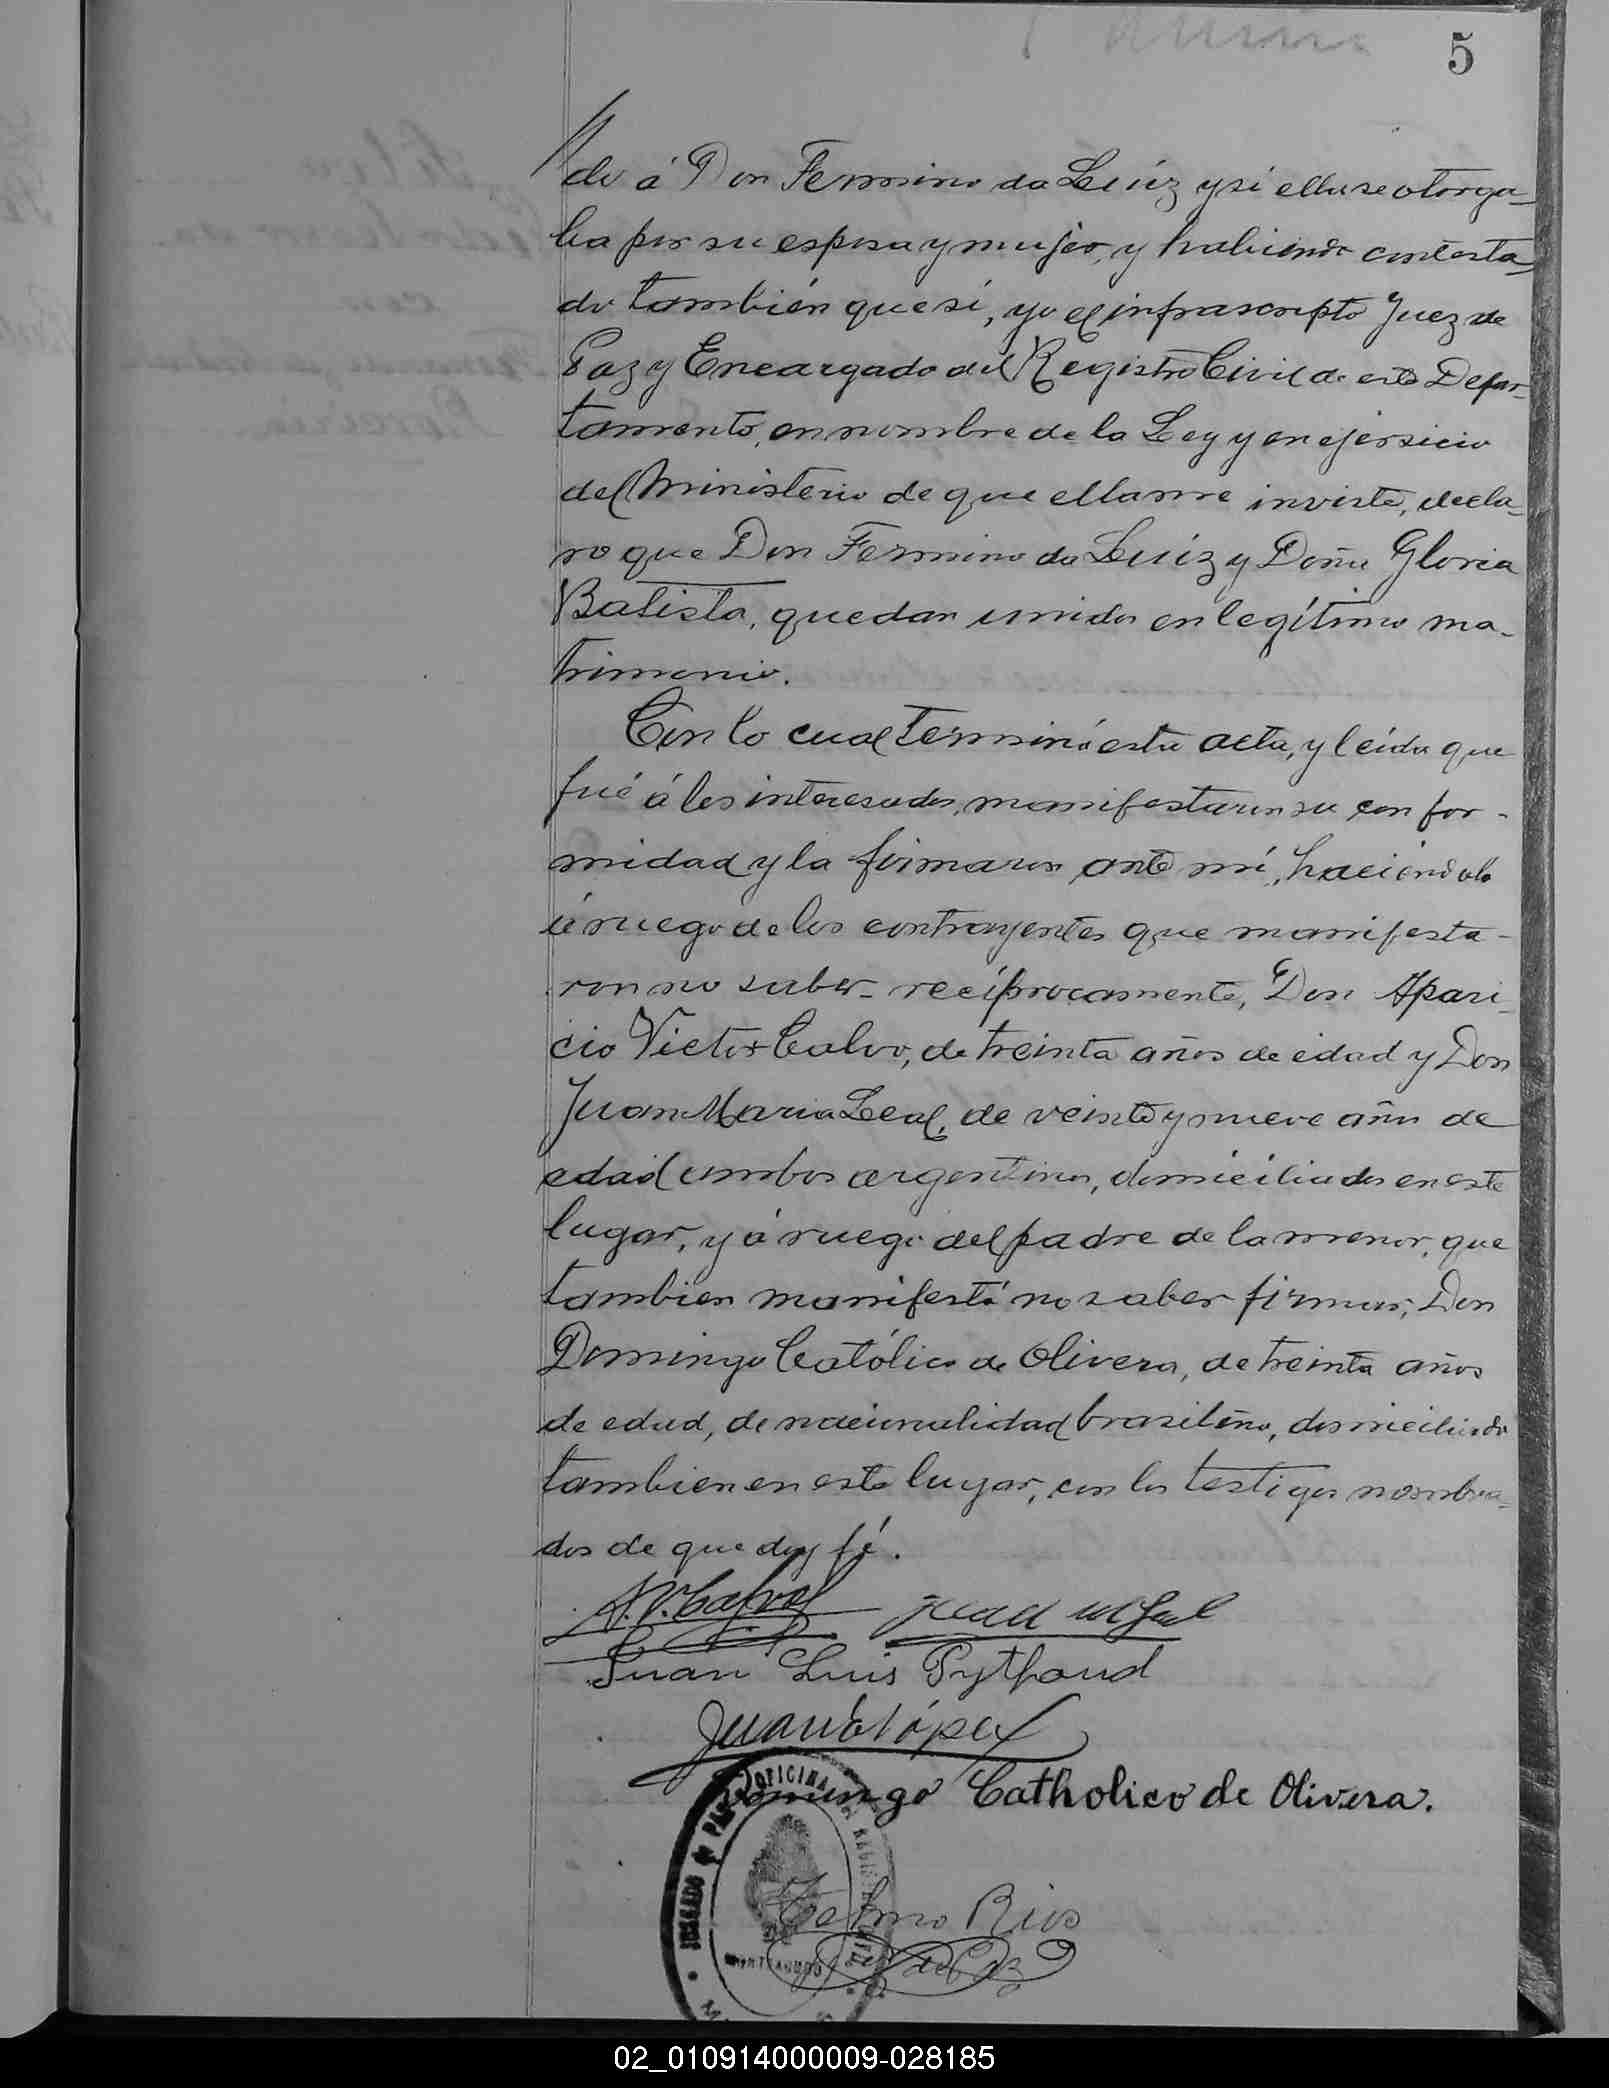 5
do á Don Fermino da Luíz y si ella se otorga-
ba por su esposa y mujer, y habiendo contesta-
do también que sí, yo el infrascripto Juez de
Paz y Encargado del Registro Civil de este Depar-
tamento, en nombre de la Ley y en ejersicio
del Ministerio de que ella me inviste, decla-
ro que Don Fermino da Luíz y Doña Gloria
Batista, quedan unidos en legítimo ma-
trimonio.
Con lo cual terminó esta acta, y leída que
fué á los interesados, manifestaron su confor-
midad y la firmaron ante mí, haciéndolo
á ruego de los contrayentes que manifesta-
ron no saber recíprocamente, Don Apari-
cio Victor Calvo, de treinta años de edad y Don
Juan Maria Leal, de veinte y nueve años de
edad ambos argentinos, domiciliados en este
lugar, y á ruego del padre de la menor, que
tambien manifestó no saber firmar, Don
Domingo Católico de Olivera, de treinta años
de edad, de nacionalidad brasileño, domiciliado
tambien en este lugar, con los testigos nombra-
dos de que doy fé.
Juan Luis
Juan López
Domingo Catholico de Olivera.
OFICINA
JUZGADO DE PAZ
Telmo Rios
J. de Paz
02_010914000009-028185